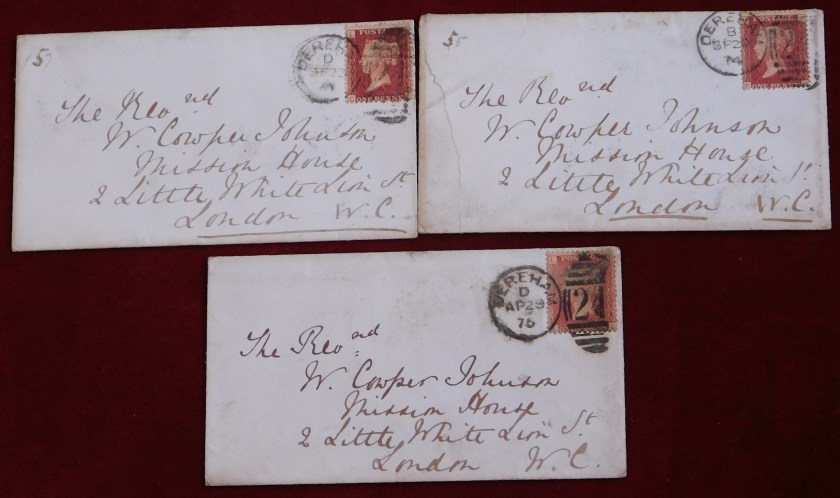 5
DEREHAM
D
SP23
POSTAGE
ONE PENNY
The Revnd
W. Cowper Johnson
Mission House
2 Little White Lion St.
London W.C.
55
DEREHAM
B
SP2
74
2
The Revnd
W. Cowper Johnson
Mission House
2 Little White Lion St.
London W.C.
DEREHAM
D
AP29
75
2
The Revnd
W. Cowper Johnson
Mission House
2 Little White Lion St.
London W.C.